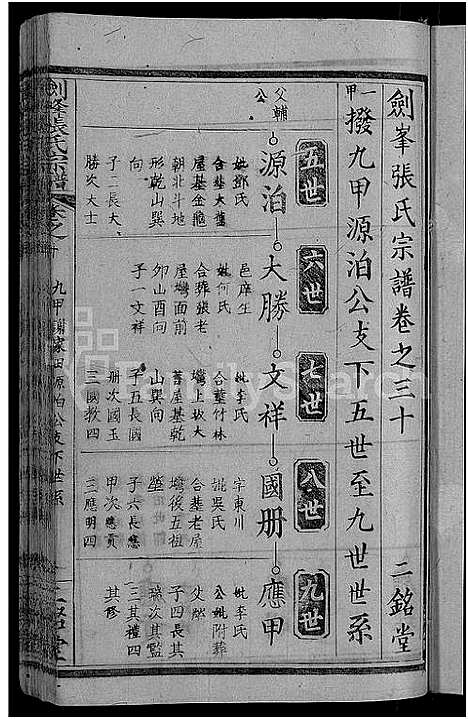 劍峯張氏宗譜卷之三十
二銘堂
一甲撥九甲源泊公支下五世至九世世系
五世
六世
七世
八世
九世
父輔公
源泊
大勝
文祥
國册
應甲
妣鄧氏
合葬大舊
屋基金龜
朝北斗地
形乾山巽
子二長大
勝次大士
邑庠生
妣何氏
合葬張老
屋塆面前
夘山酉向
子一文祥
妣李氏
合葬付林
塆上坂大
舊屋基乾
山巽向
子五長國
册次國玉
三國教四
字東川
妣吳氏
合墓老屋
塆後五祖
塋
子六長應
甲次應貢
三應明四
妣李氏
公妣附葬
父塋
子四長其
瑞次其監
三其禮四
其修
劍峯張氏宗譜
卷之三十
九甲謝家田源泊公支下世系
二銘堂
FamilySearch